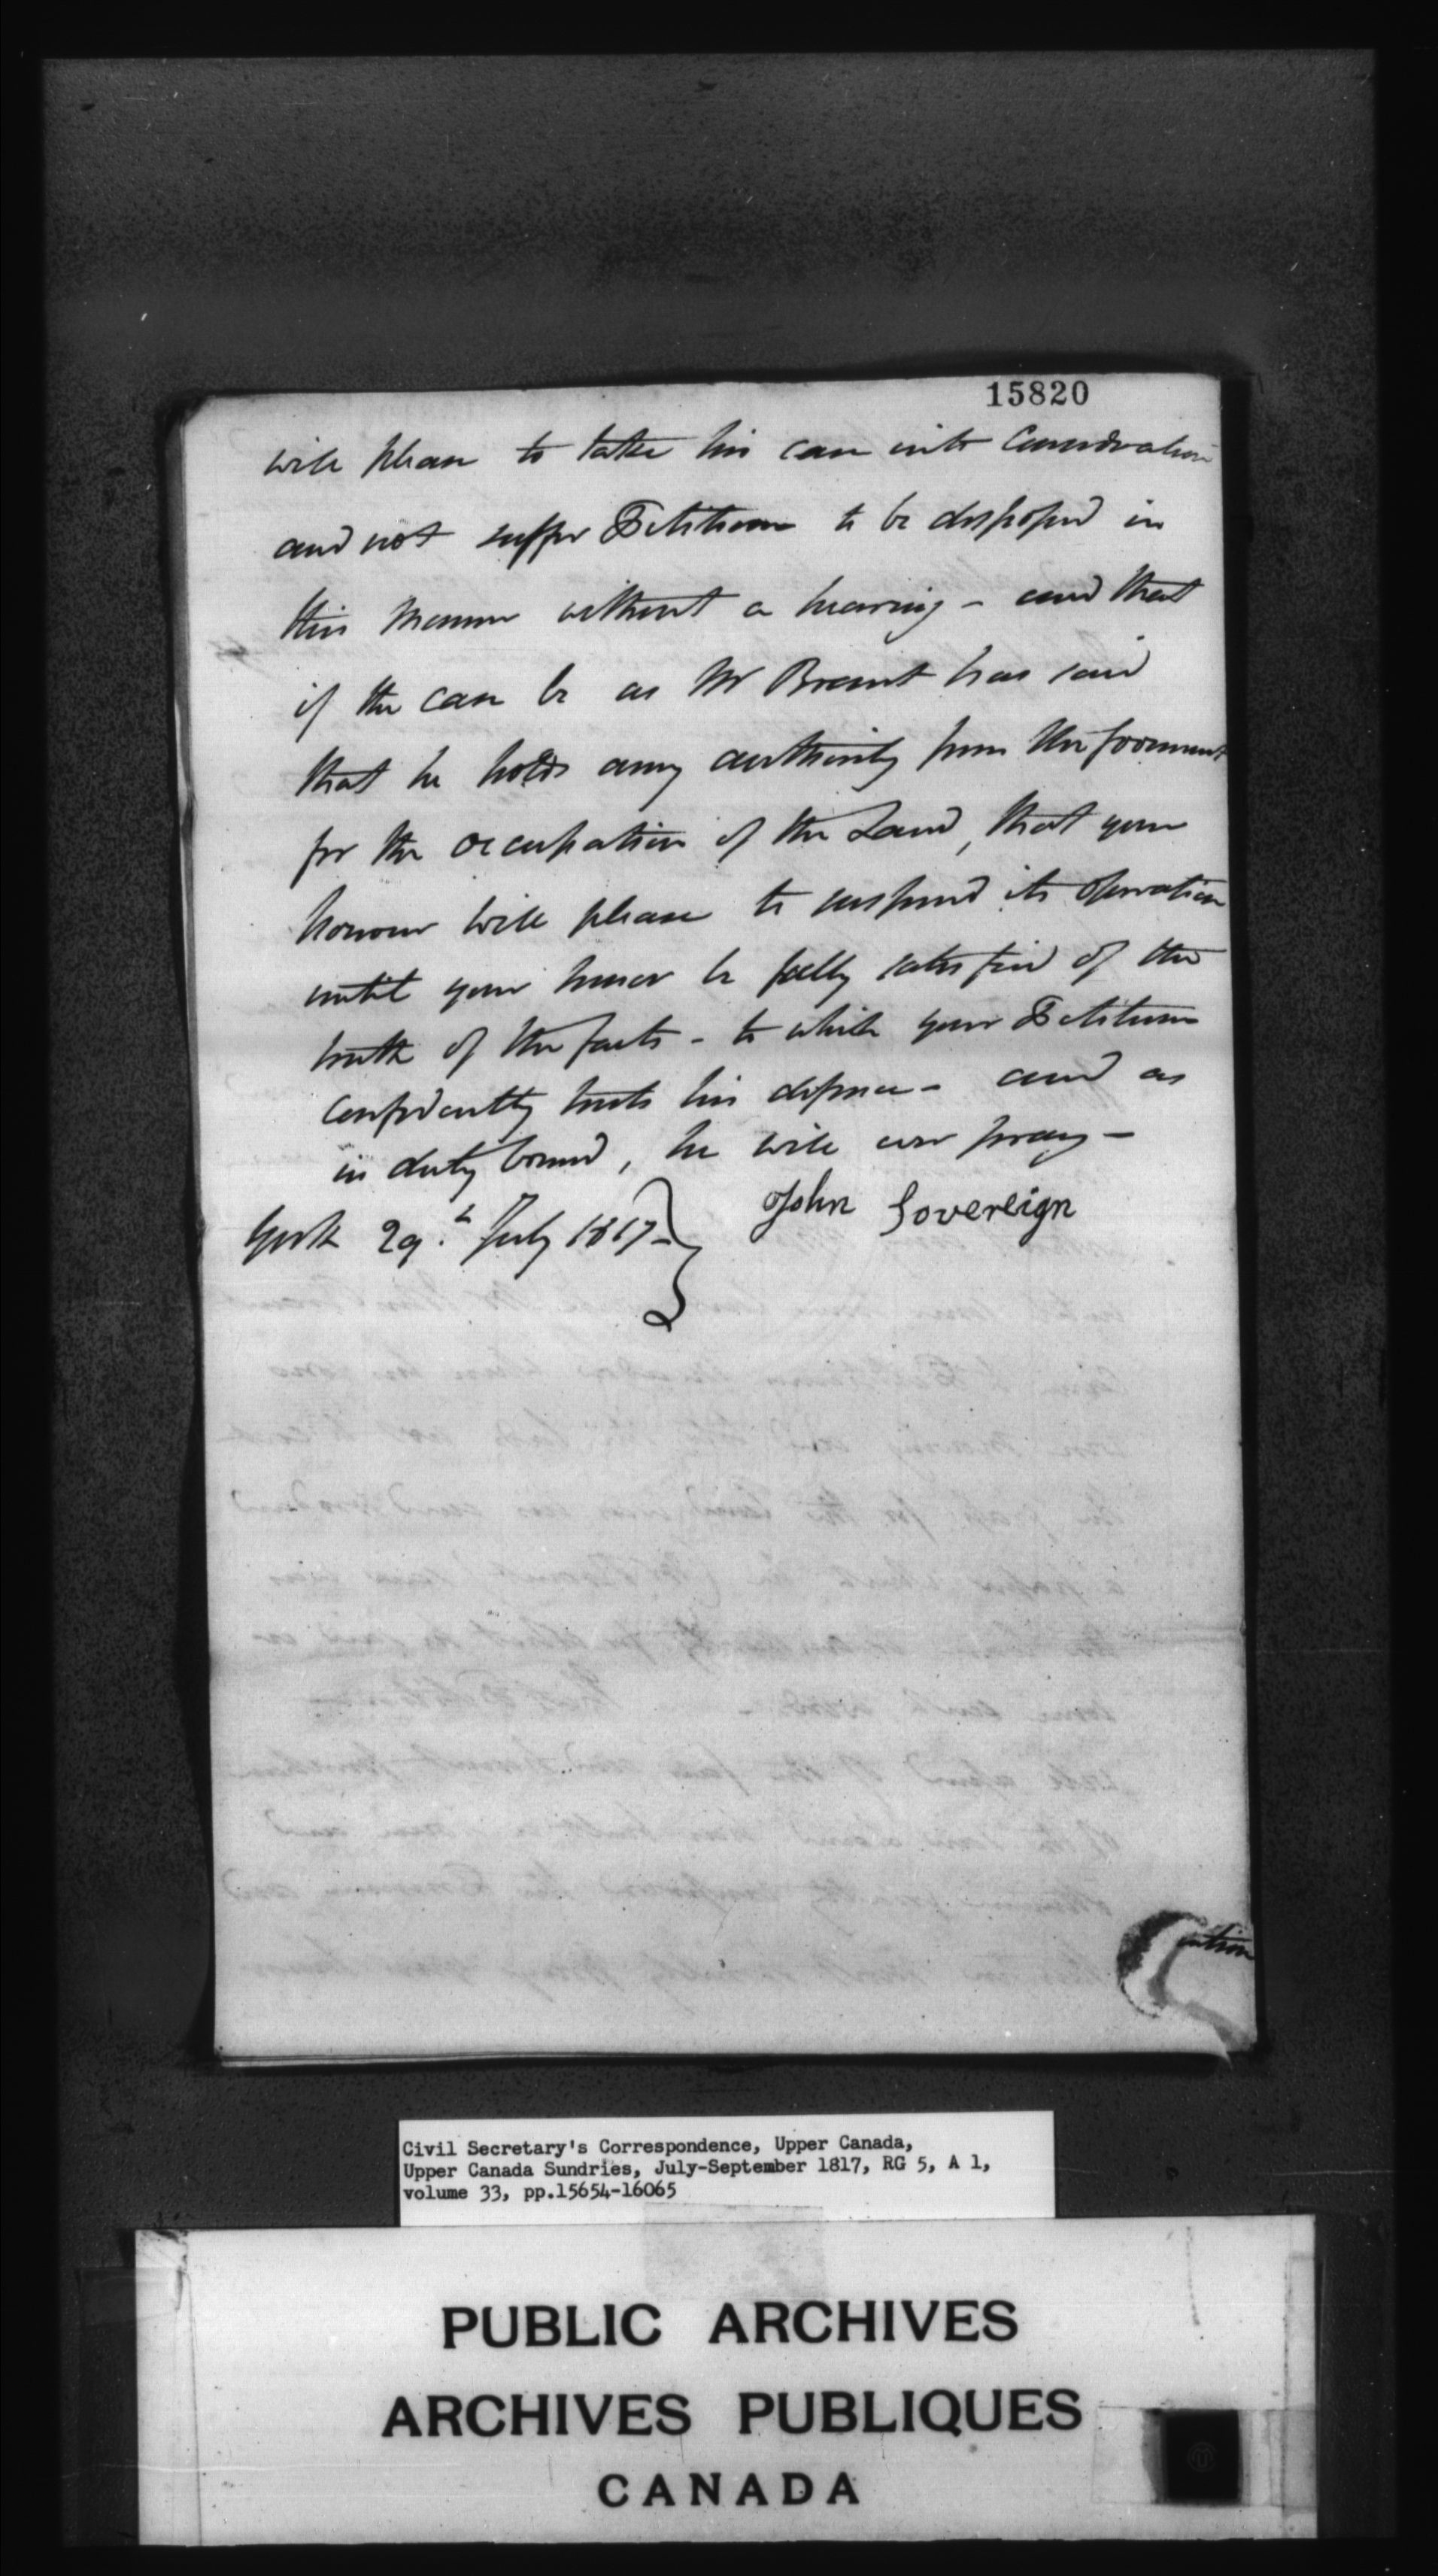 15820
will please to take his case into Consideration
and not suffer Petitioner to be disposed in
this manner without a hearing - and that
if the case be as Mr Brant has said
that he holds any authority from the Government
for the occupation of the Land, that your
honour will please to suspend its operation
until your honor be fully satisfied of the
truth of the facts - to which your Petitioner
confidently trusts his defence - and as
in duty bound, he will ever pray -
John Sovereign
York 29.th July 1817 -
Civil Secretary's Correspondence, Upper Canada,
Upper Canada Sundries, July-September 1817, RG 5, A 1,
volume 33, pp.15654-16065
PUBLIC ARCHIVES
ARCHIVES PUBLIQUES
CANADA